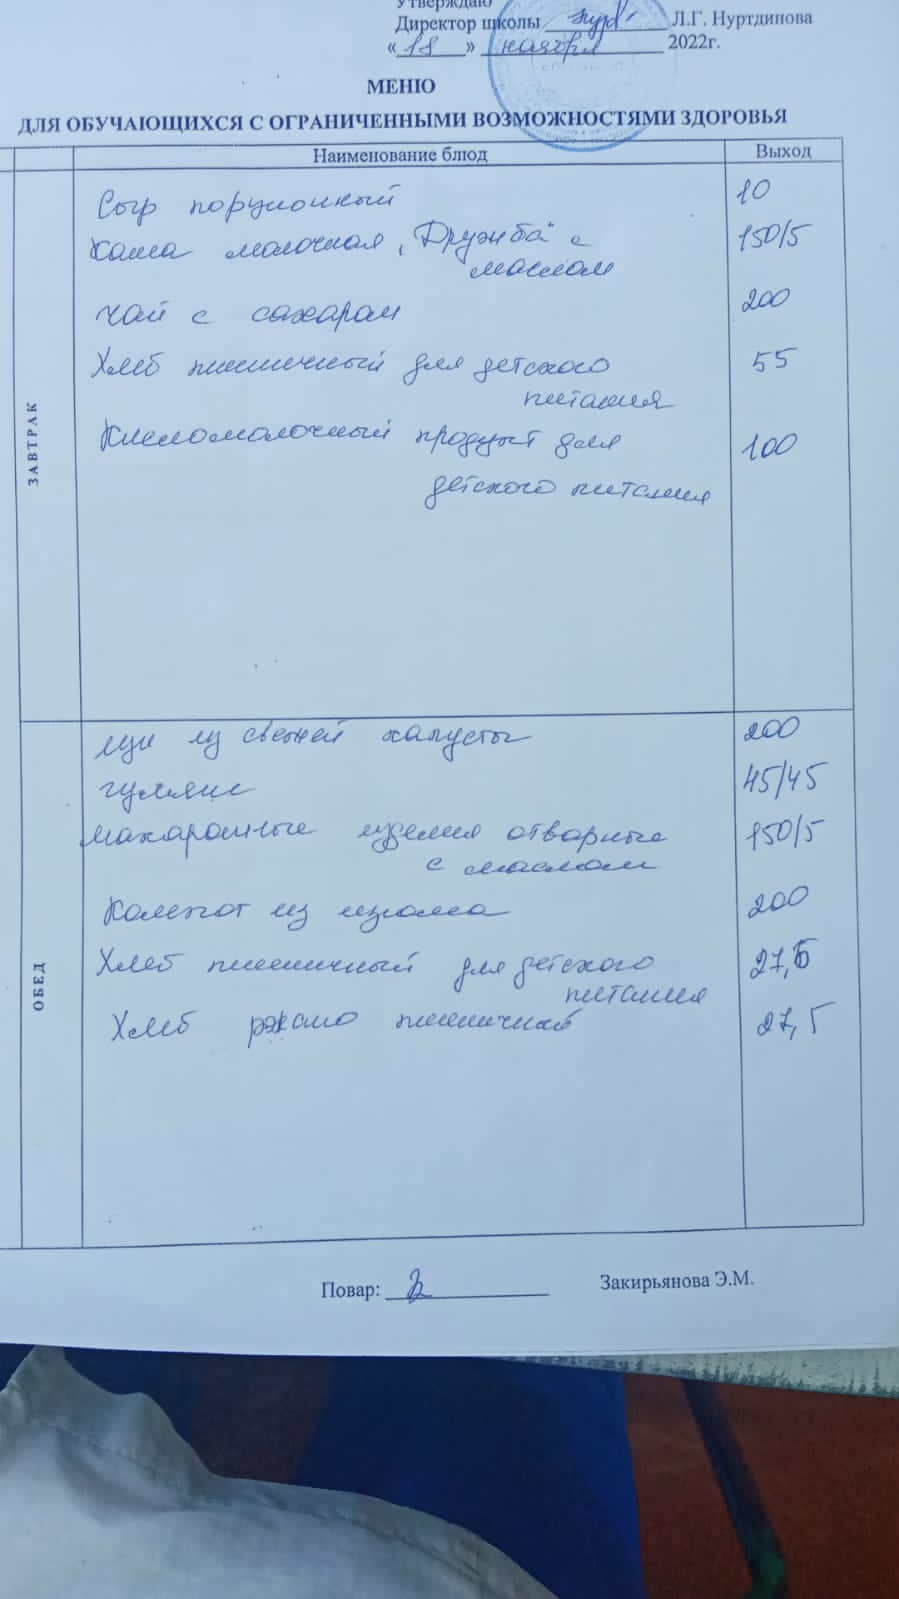 Утверждаю
Директор школы Л.Г. Нуртдинова
« 18 » ноября 2022г.
МЕНЮ
ДЛЯ ОБУЧАЮЩИХСЯ С ОГРАНИЧЕННЫМИ ВОЗМОЖНОСТЯМИ ЗДОРОВЬЯ
Наименование блюд Выход
ЗАВТРАК
Сыр порционный 10
Каша молочная „Дружба" с 150/5
маслом
Чай с сахаром 200
Хлеб пшеничный для детского 55
питания
Кисломолочный продукт для 100
детского питания
ОБЕД
Щи из свежей капусты 200
гуляш 45/45
Макаронные изделия отварные 150/5
с маслом
Компот из изюма 200
Хлеб пшеничный для детского 27,5
питания
Хлеб ржано пшеничный 27,5
Повар: Закирьянова Э.М.